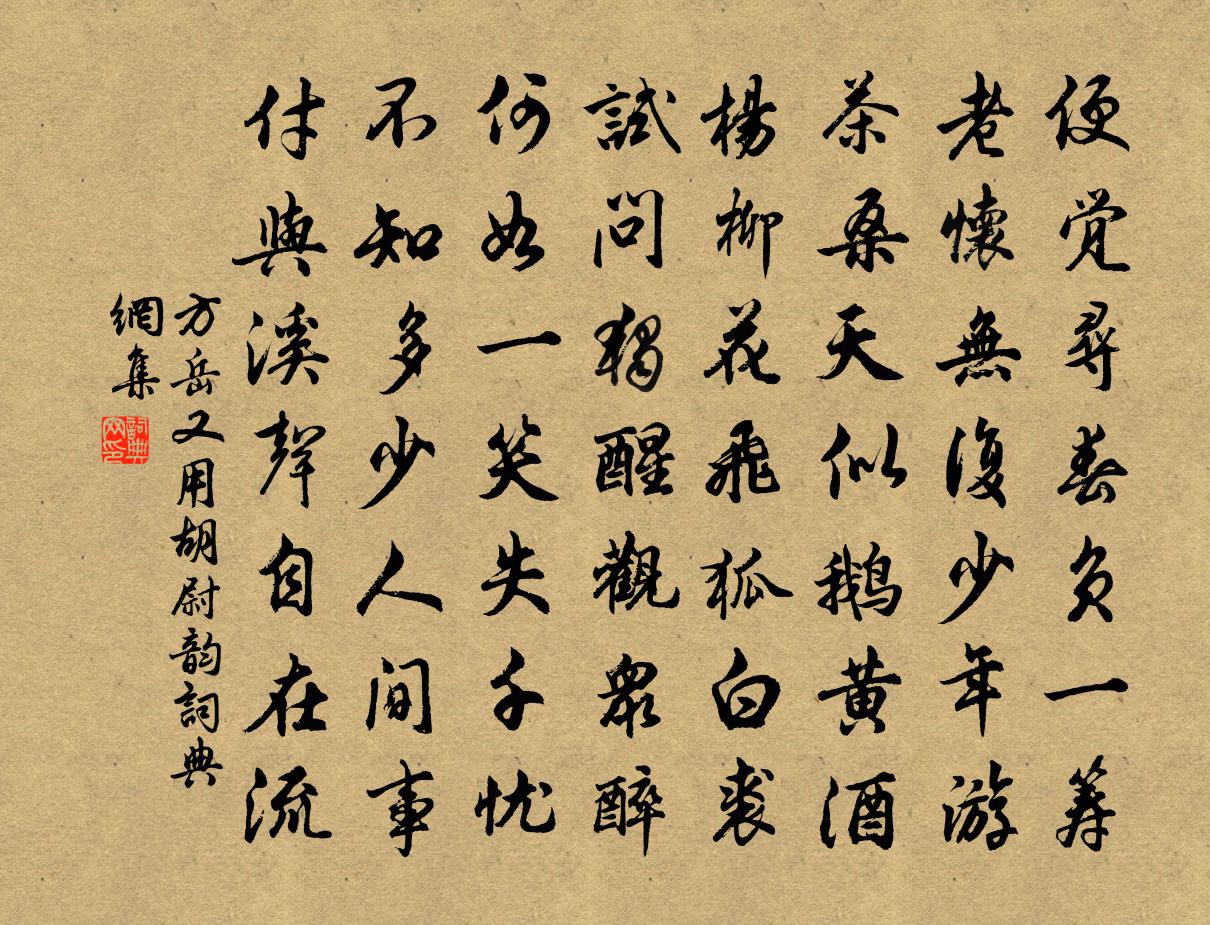 便覚尋春負一籌
老懷無復少年游
茶桑天似鵝黄酒
楊柳花飛狐白裘
試問獨醒觀眾醉
何如一笑失千忧
不知多少人間事
付與溪聲自在流
方岳又用胡尉韵詞典
網集
詞典
网印